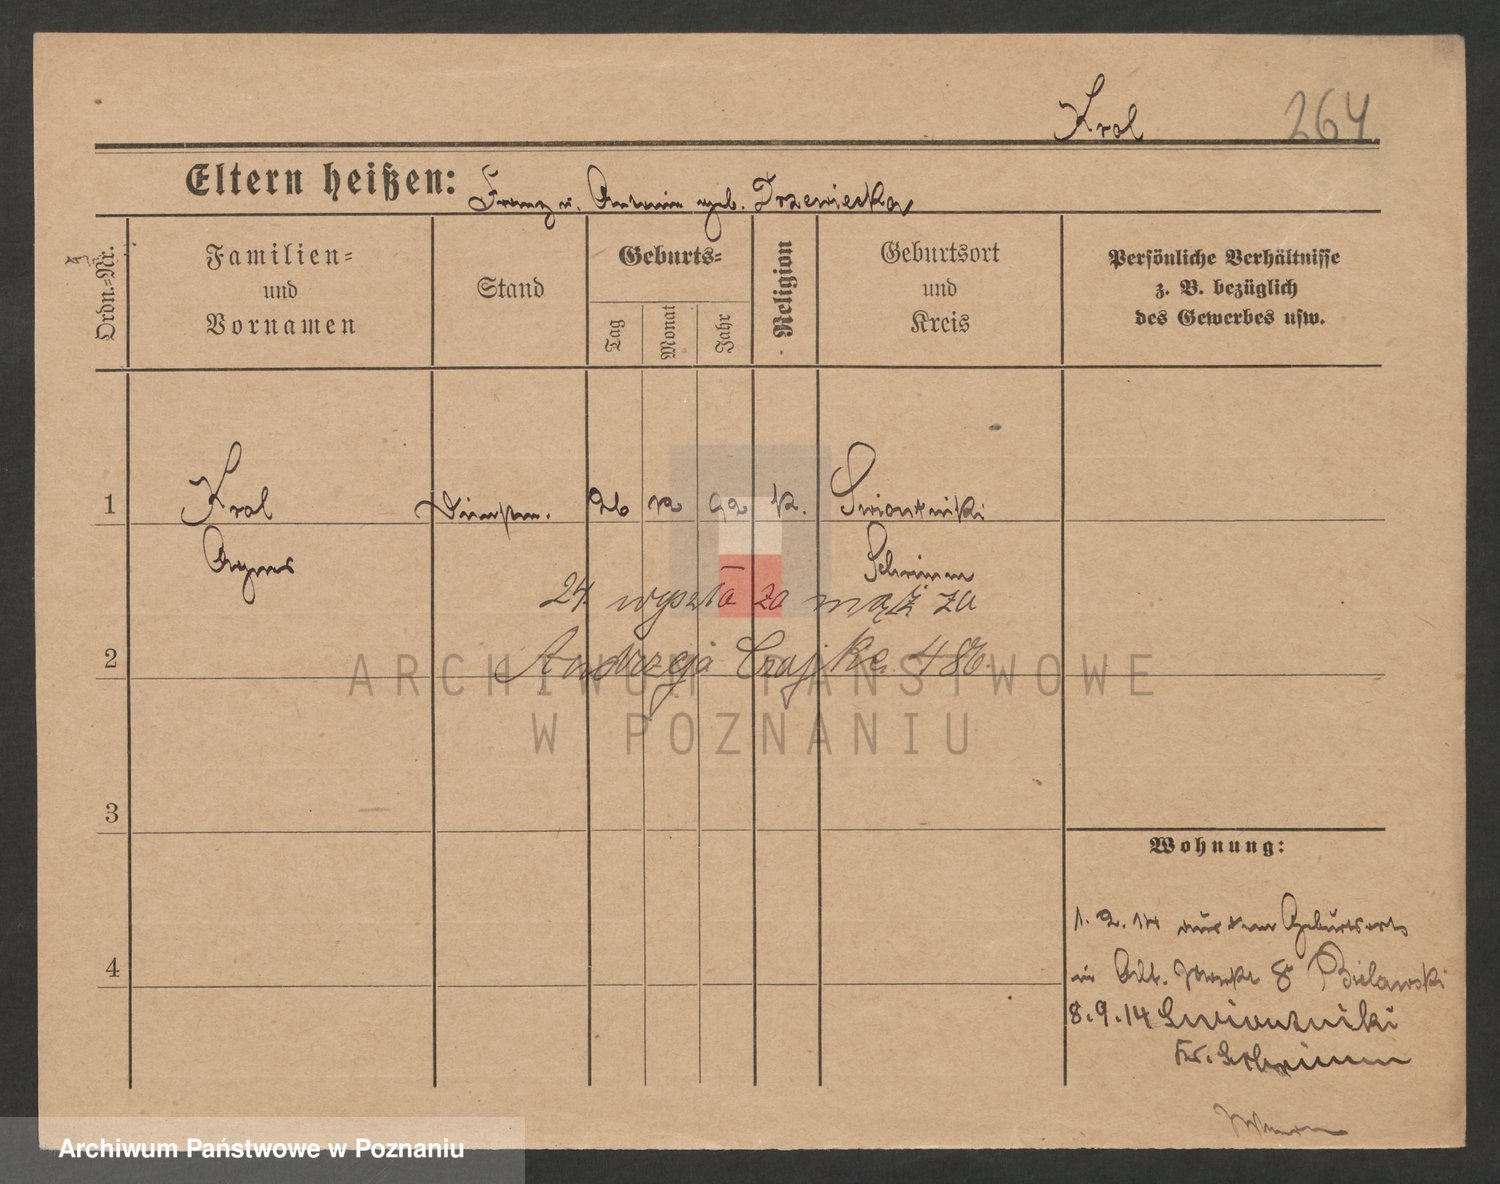 Krol 264
Eltern heißen: Franz u. Antonie geb. Trzeniecka
Ordn.-Nr.
Familien-
und
Vornamen
Stand
Geburts-
Tag
Monat
Jahr
Religion
Geburtsort
und
Kreis
Persönliche Verhältnisse
z. B. bezüglich
des Gewerbes usw.
1 Krol 26 12 92 k.
Agnes Schrimm
24. wyszła za mąż za
2 Andrzeja 486.
ARCHIWUM PAŃSTWOWE
W POZNANIU
3
Wohnung:
1. 2. 14 aus dem Geburtsort
4 in Alt. 8 Bielawski
8.9.14
Kr. Schrimm
Archiwum Państwowe w Poznaniu